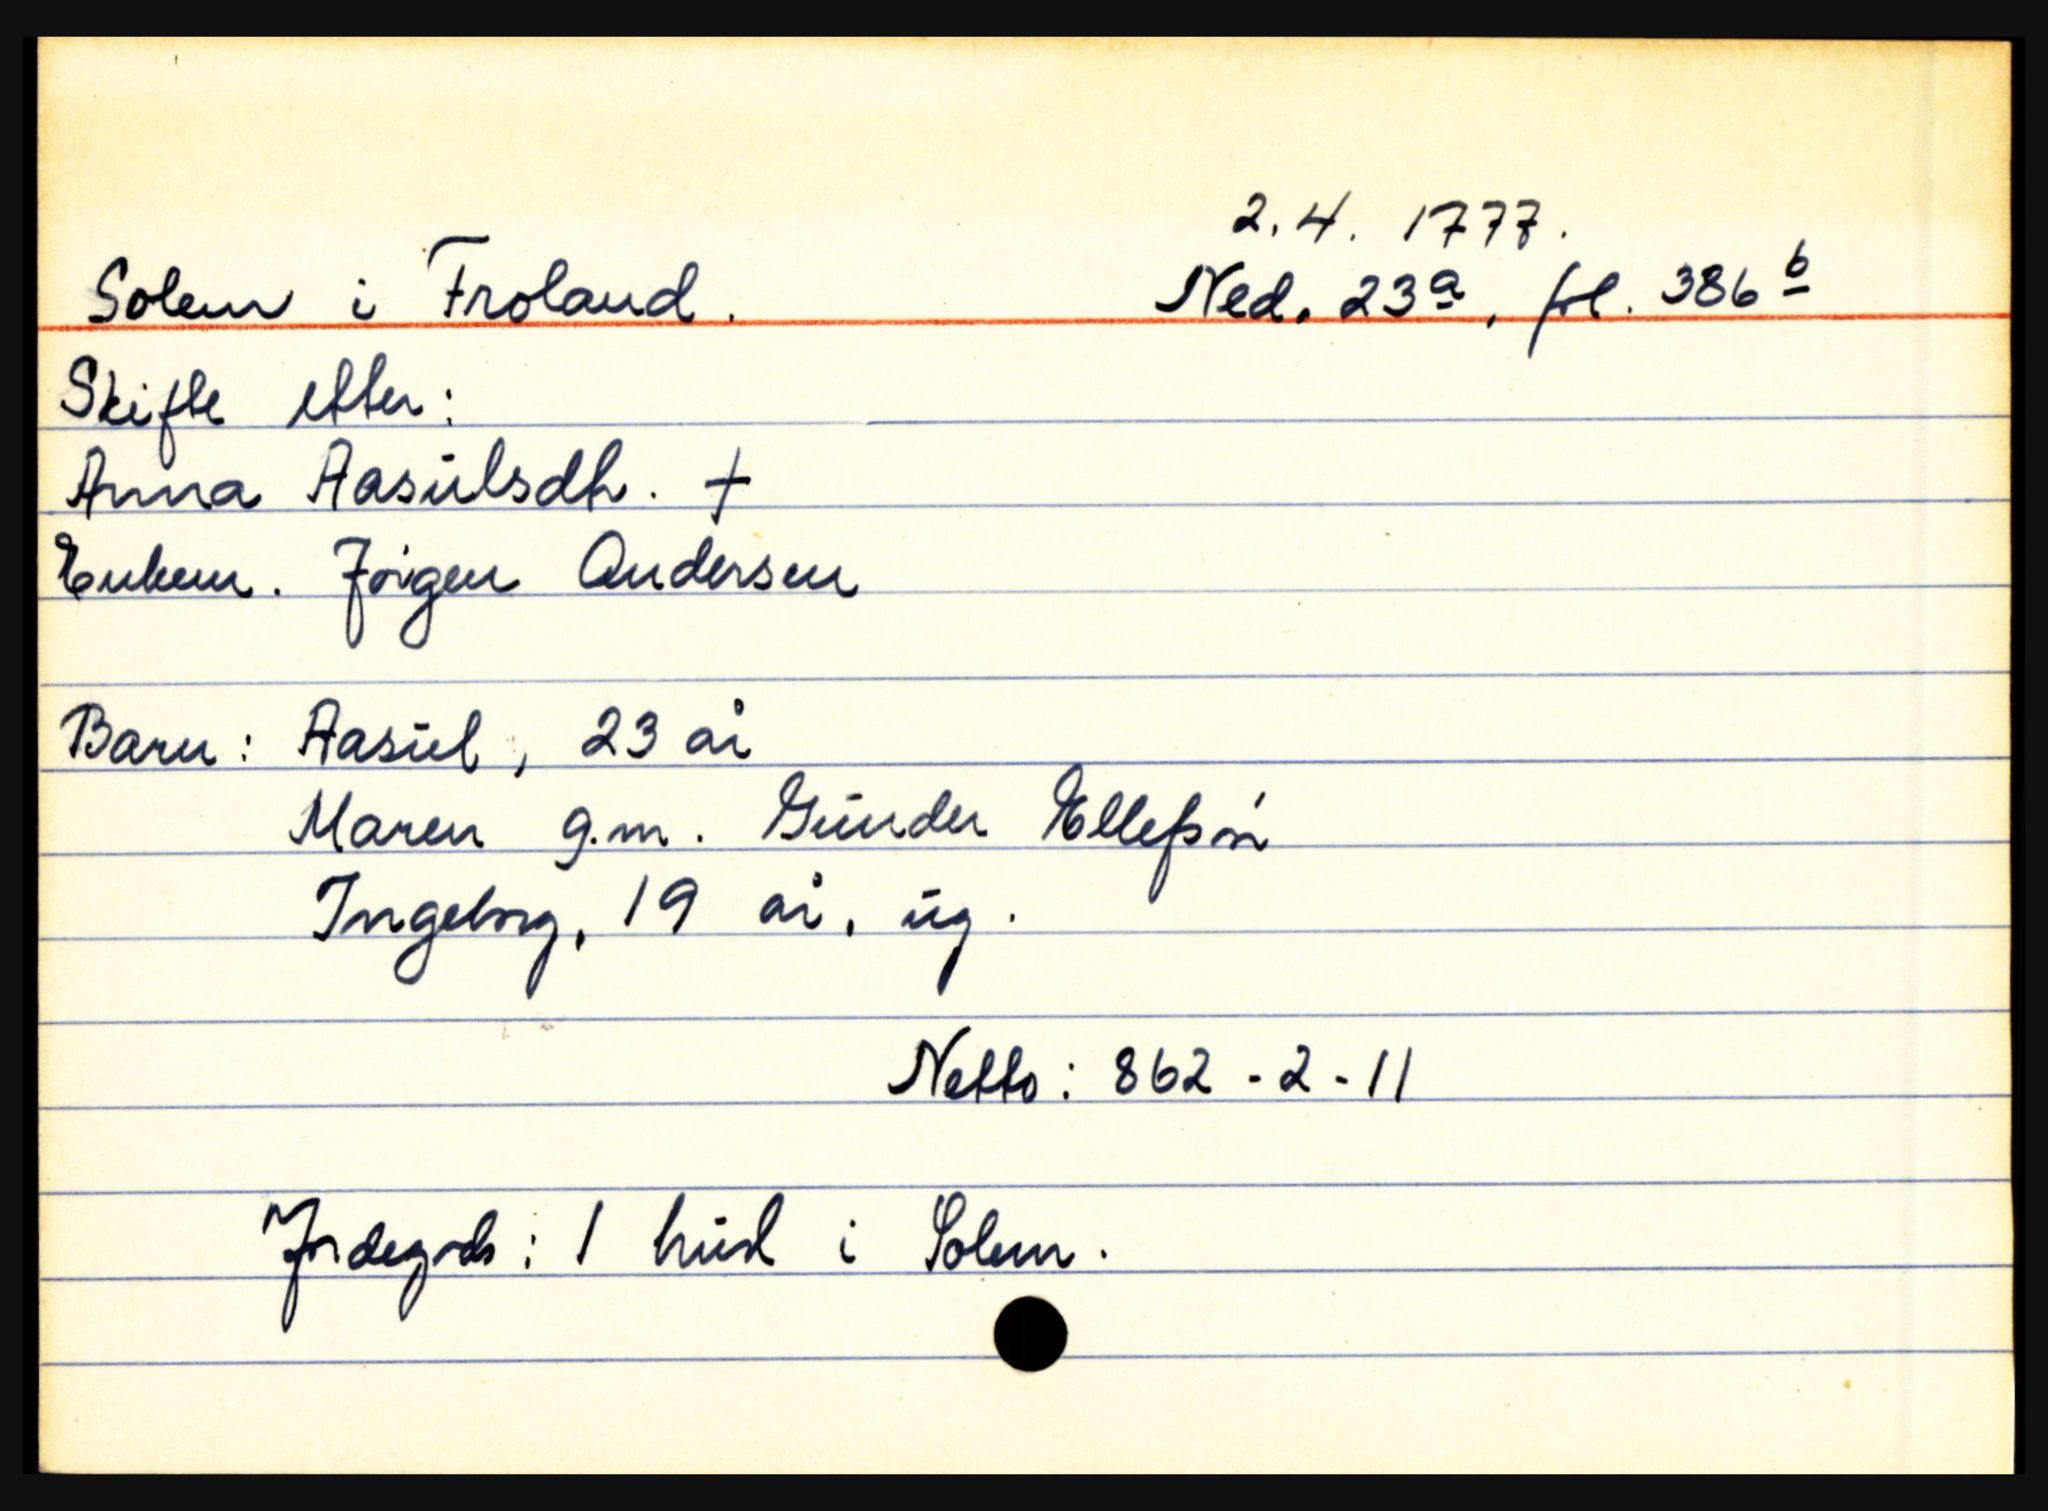 2.4. 1777.
Solem i Froland. Ned. 23a, fol. 386b
Skifte etter:
Anna Aasulsdtr. †
Enkem. Jörgen Andersen
Barn: Aasul, 23 år
Maren g.m. Gunder Ellefsön
Ingeborg, 19 år, ug.
Netto: 862-2-11
Jordegods: 1 hud i Solem.